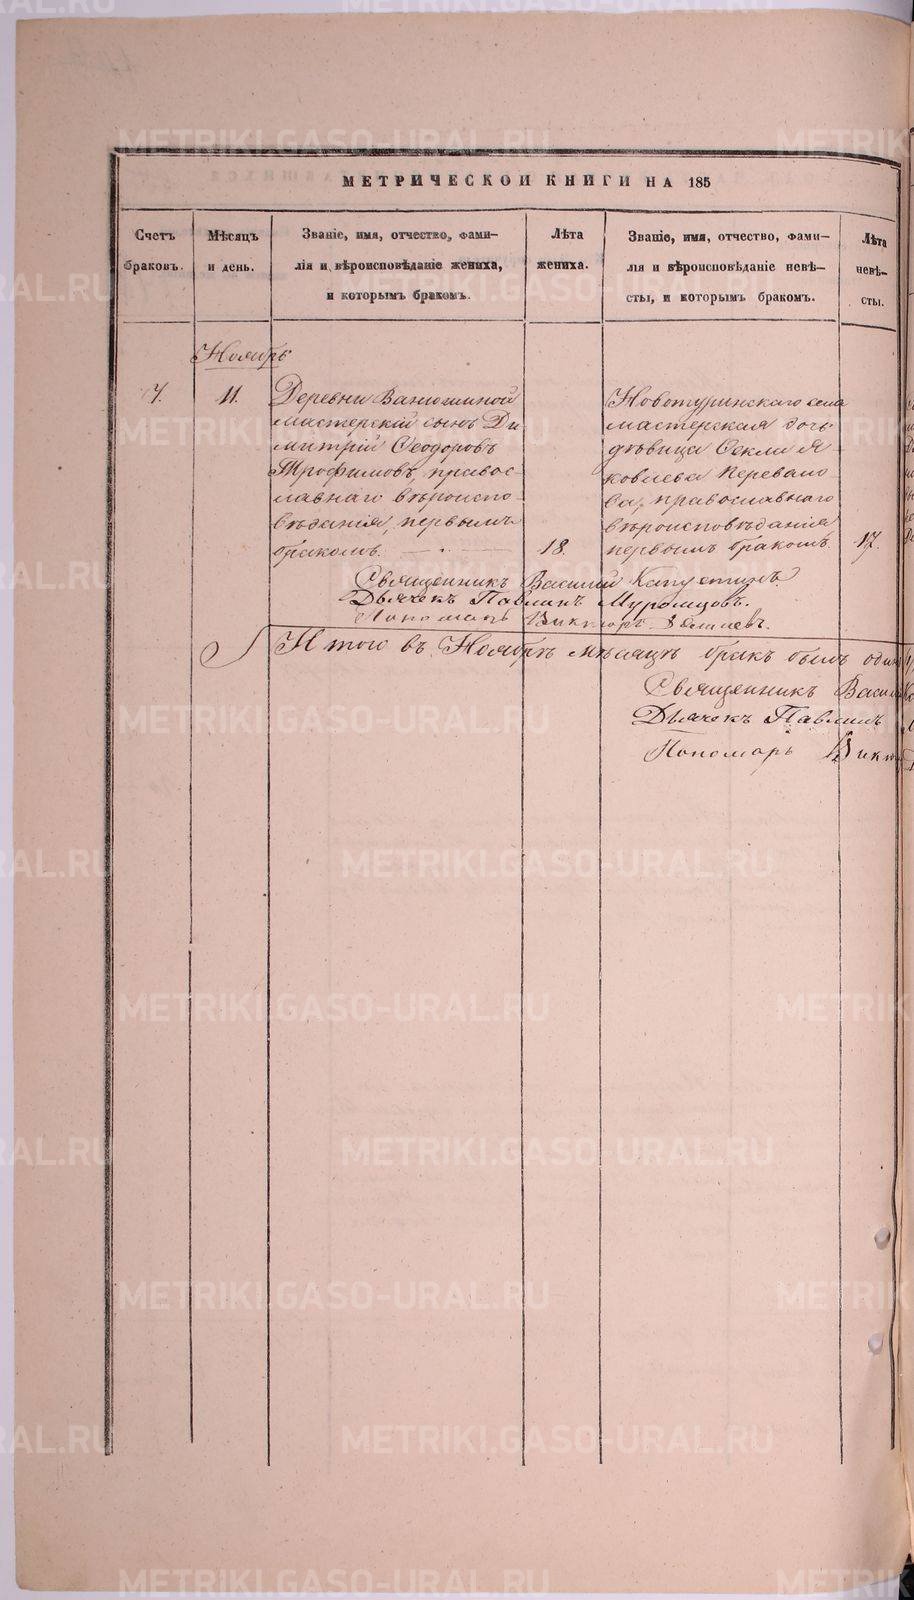 МЕТРИЧЕСКОЙ КНИГИ НА 185
Счетъ браковъ.
Мѣсяцъ и день.
Званіе, имя, отчество, фами-
лія и вѣроисповѣданіе жениха,
и которымъ бракомъ.
Лѣта жениха.
Званіе, имя, отчество, фами-
лія и вѣроисповѣданіе невѣ-
сты, и которымъ бракомъ.
Лѣта невѣ-
сты.
Ноябрь
7.
11.
Деревни Ванюшиной
мастерскій сынъ Ди
митрій Ѳеодоровъ
Трофимовъ, правос
лавнаго вѣроиспо-
вѣданія, первымъ
бракомъ.
18.
Новотуринскаго села
мастерская дочь
дѣвица Ѳекла Я
ковлева Перевало
ва, православнаго
вѣроисповѣданія
первымъ бракомъ.
17.
Священникъ Василій Капустинъ.
Дьячекъ Павлинъ Муромцовъ.
Пономарь Викторъ
Итого въ Ноябрѣ мѣсяцѣ бракъ былъ один
Священникъ Васил
Дьячекъ Павлинъ
Пономарь Викт
METRIKI.GASO-URAL.RU